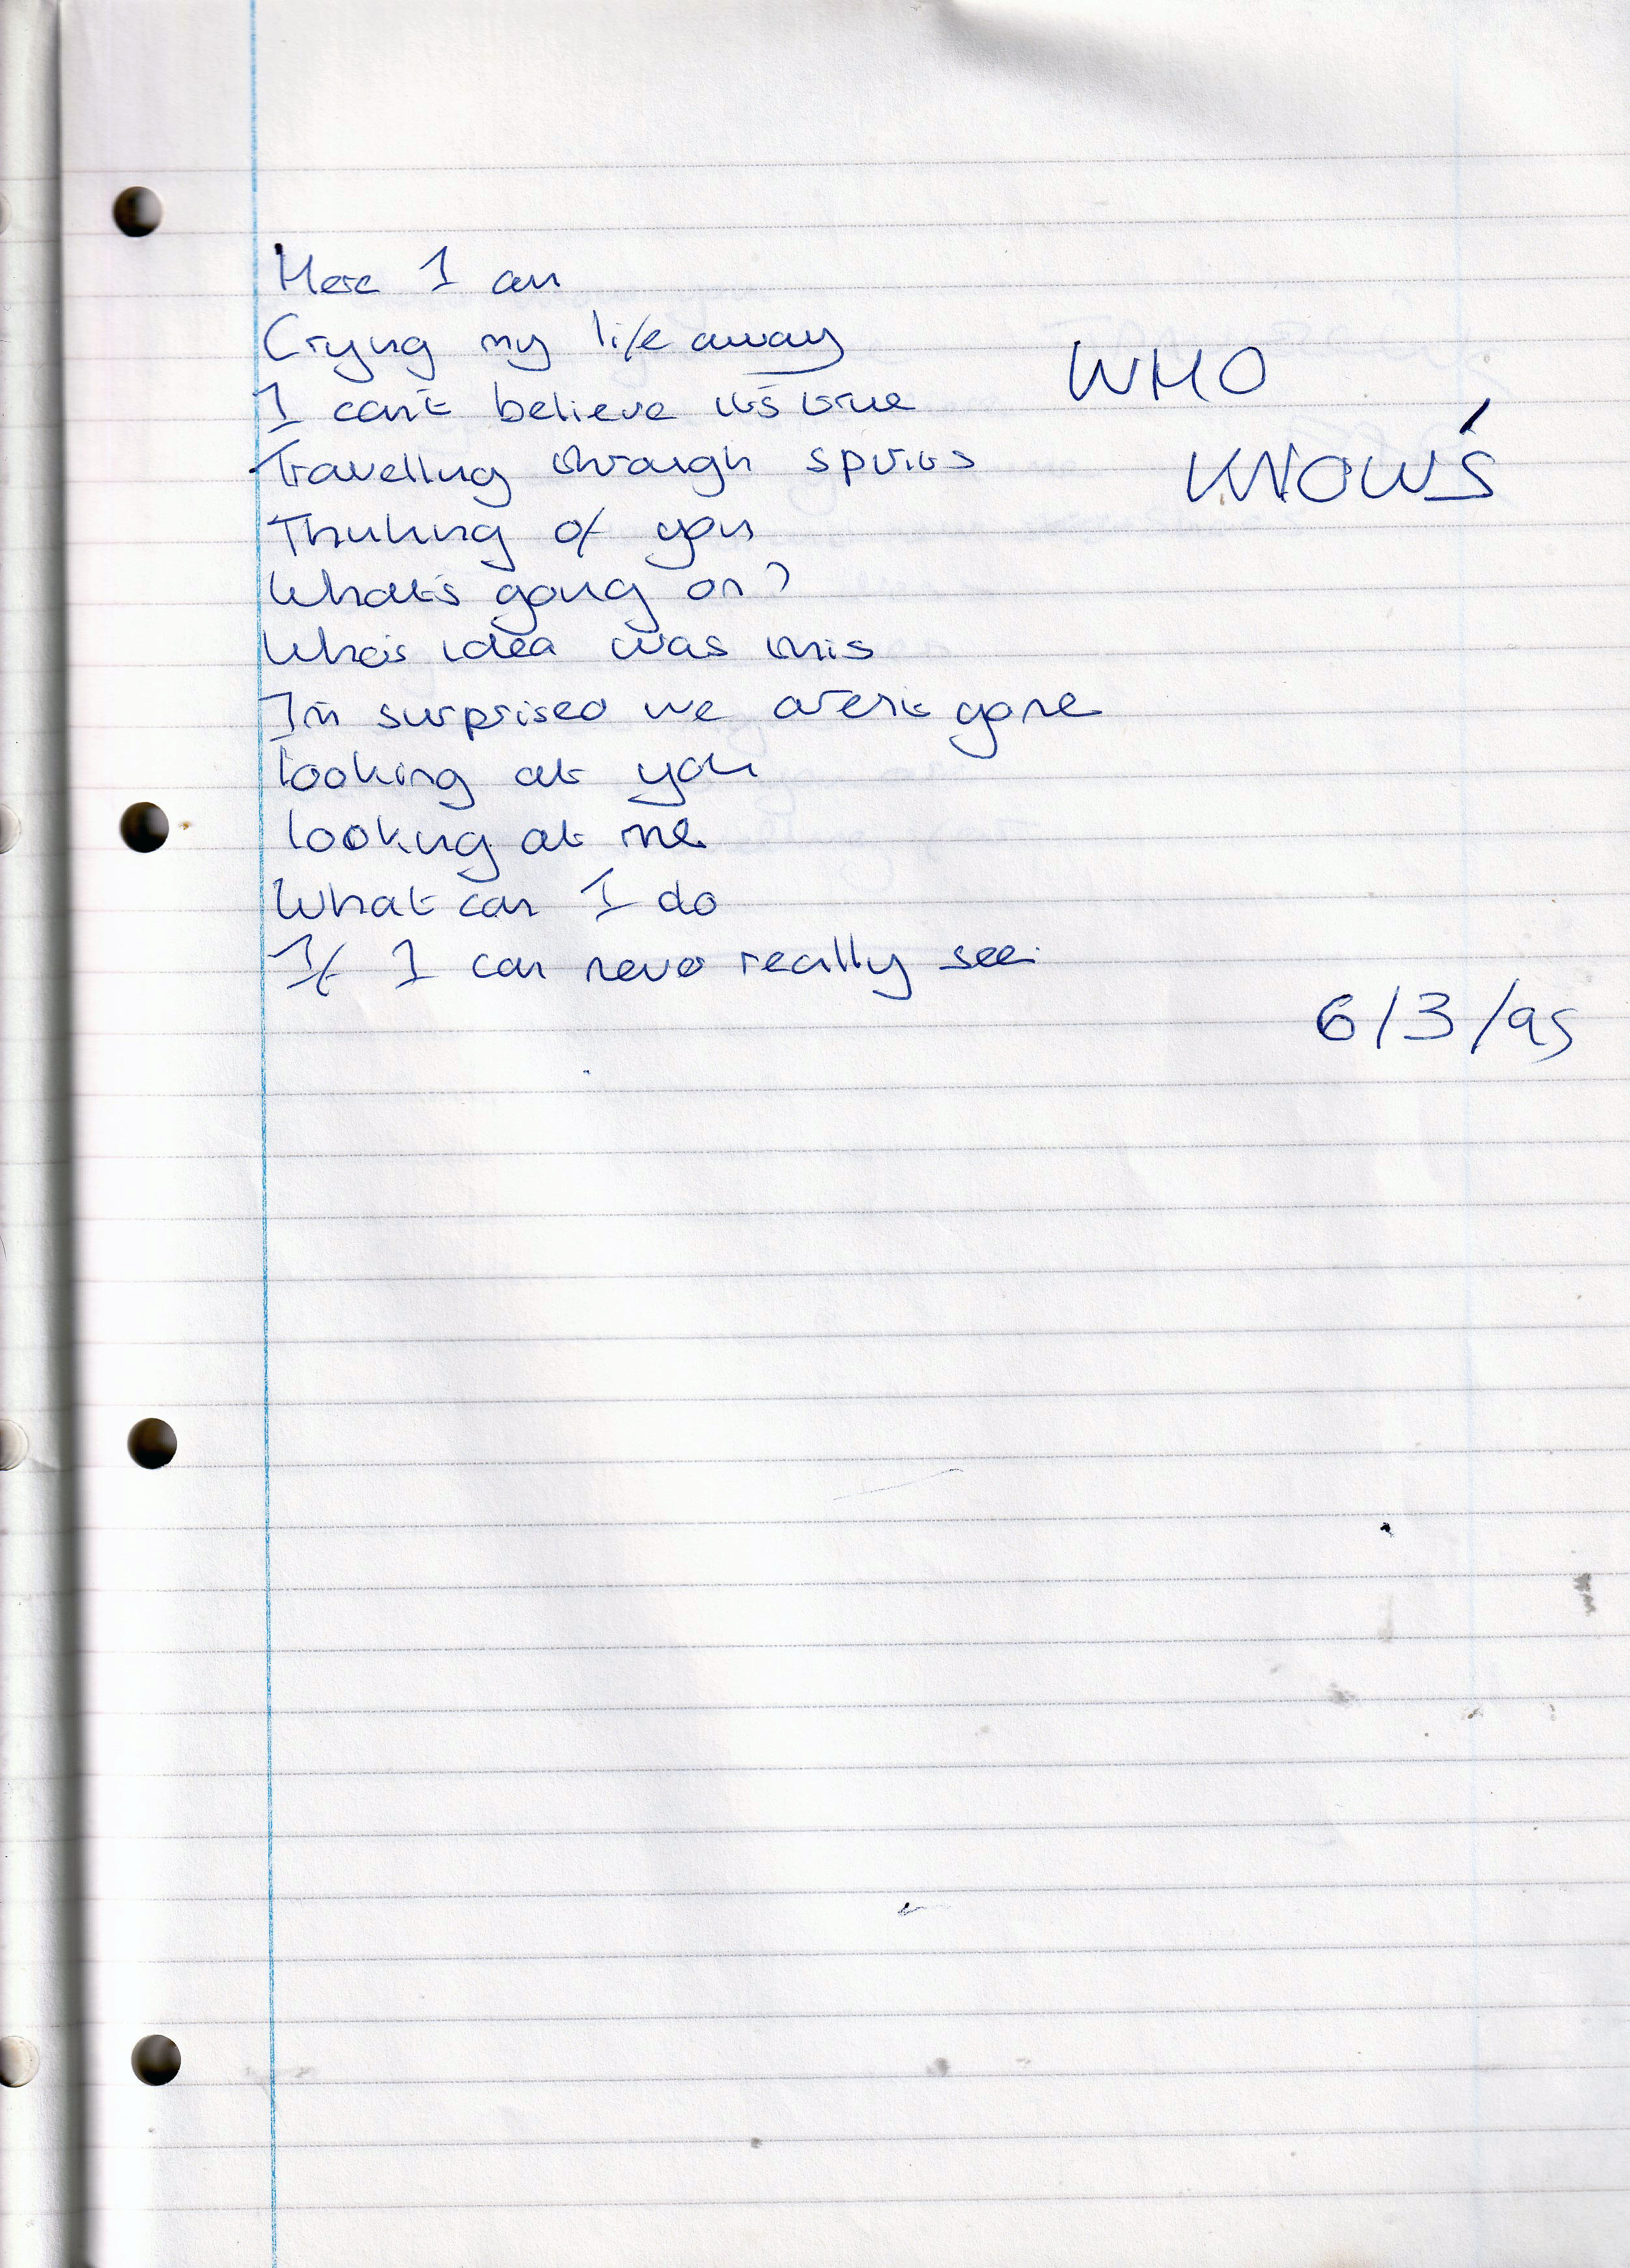 Here I am
Crying my life away
I can't believe it's true
Travelling through spirits
Thinking of you
What's going on?
Who's idea was this
I'm surprised we aren't gone
looking at you
looking at me
What can I do
If I can never really see
WHO
KNOWS
6/3/95